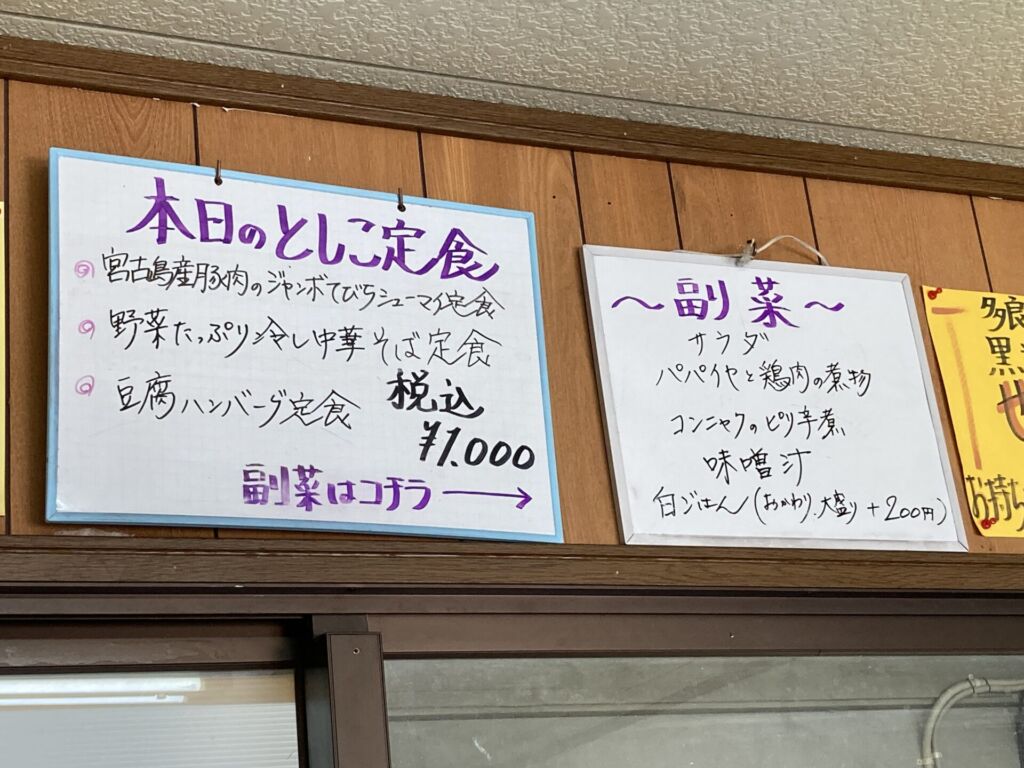 本日のとしこ定食
宮古島産豚肉のジャンボてびちシューマイ定食
野菜たっぷり冷し中華そば定食
豆腐ハンバーグ定食
税込
¥1.000
副菜はコチラ→
～副菜～
サラダ
パパイヤと鶏肉の煮物
コンニャクのピリ辛煮
味噌汁
白ごはん(おかわり.大盛り+200円)
黒
お持ち